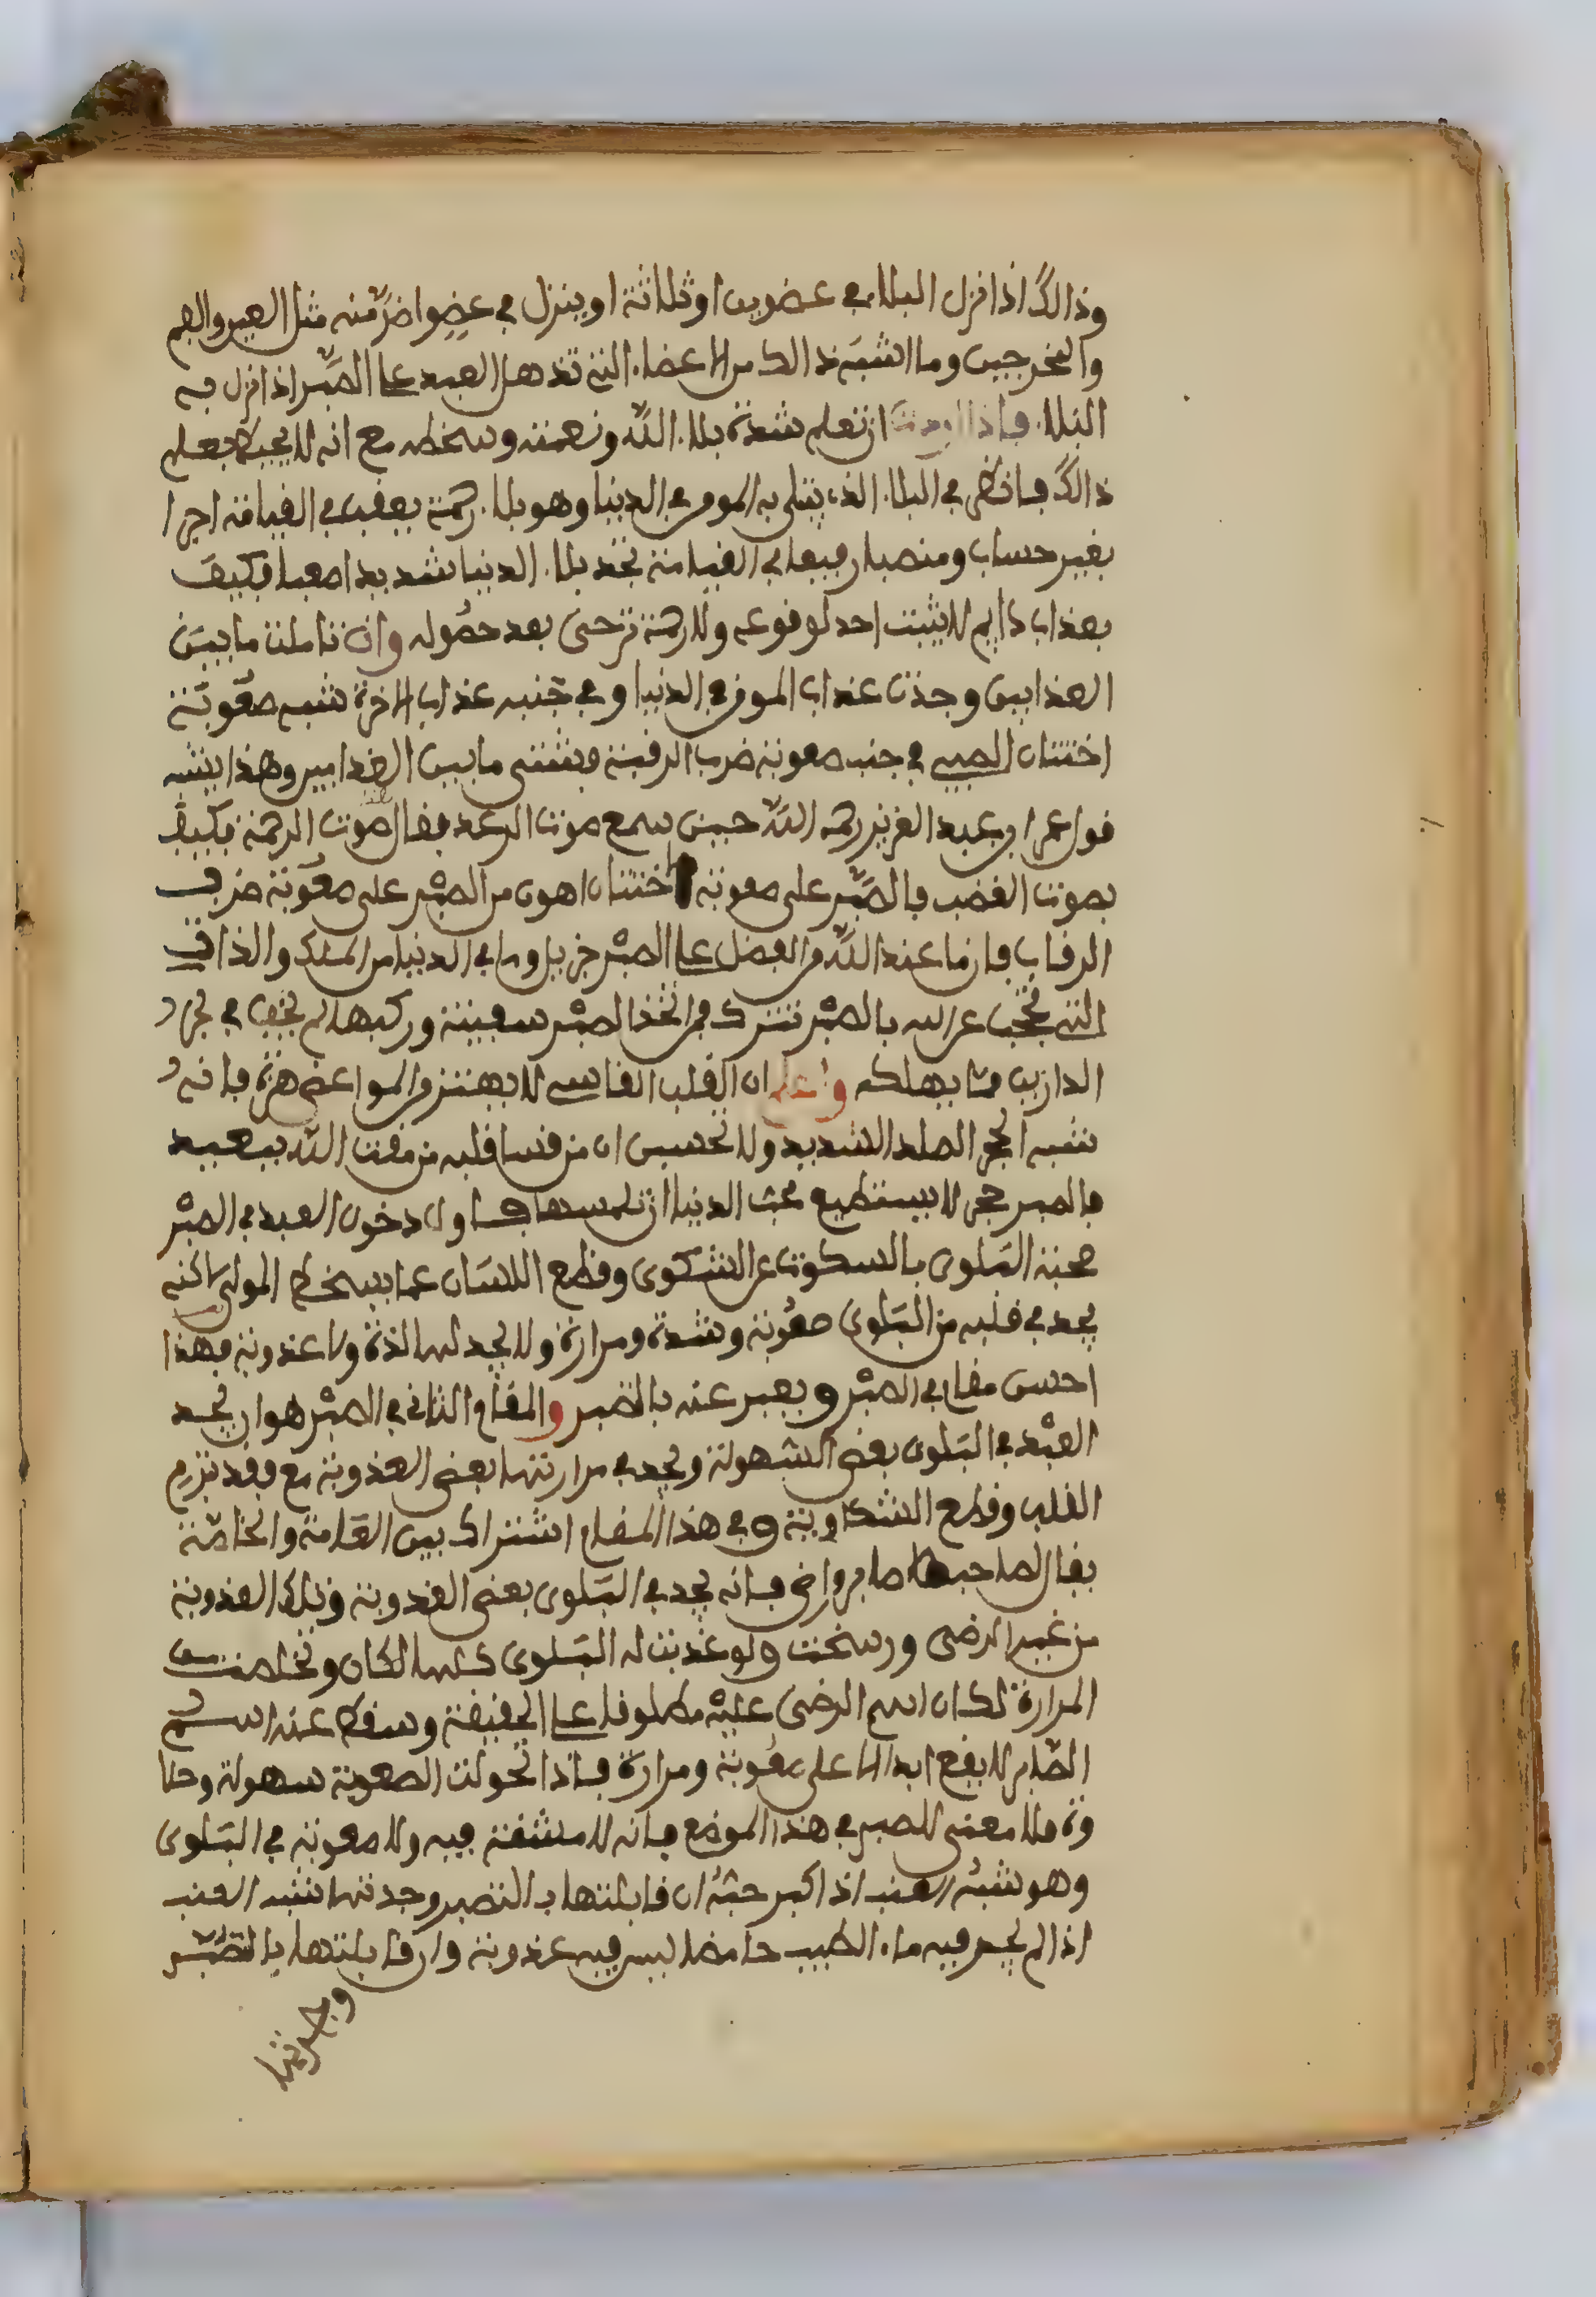 وذالك اذا نزل البلاء في عضوين او ثلاثة او ينزل في عضو اضر منه مثل العين والفم
والمخرجين وما اشبه ذالك من الاعضاء التي تذهل العبد عن الصبر اذا نزل به
البلاء فاذا اردت ان تعلم شدة بلاء الله ونعمته وسخطه مع انه لا يحيط بعلم
ذالك فانظر في البلاء الذي يبتلى به المومن في الدنيا وهو بلاء رحمة يعقب في القيامة اجرا
بغير حساب ومنصبا رفيعا في القيامة تجد بلاء الدنيا شديدا صعبا فكيف
بعذاب دايم لا يثبت احد لوقوعه ولا رحمة ترجى بعد حصوله وان تاملت ما بين
العذابين وجدت عذاب المومن في الدنيا وفي جنبه عذاب الاخرة شبه صعوبة
اختتان الصبي في جنب صعوبة ضرب الرقبة فشتى ما بين العذابين وهذا يشبه
قول عمر ابن عبد العزيز رحمه الله حين سمع صوت الرعد فقال صوت الرحمة فكيف
بصوت الغضب فالصبر على صعوبة اختتان اهون من الصبر على صعوبة ضرب
الرقاب فان ما عند الله من الفضل على الصبر جزيل وما في الدنيا من الملك والذات
التي تحجب عن الله بالصبر تترك فمن اتخذ الصبر سفينة وركبها لم يخف في بحر
الدارين مما يهلكه واعلم ان القلب القاسي لا يهتز من المواعظ هزة فانه
شبه الحجر الصلد الشديد ولا تحسبن ان من قسا قلبه من مقت الله ببعيد
فالصبر حجر لا يستطيع محب الدنيا ان يلمسها واول دخول العبد في الصبر
صحبة البلوى بالسكوت عن الشكوى وقطع اللسان عما يسخط المولى لاكنه
يجد في قلبه من البلوى صعوبة وشدة ومرارة ولا يجد لها لذة ولا عذوبة فهذا
احسن مقام في الصبر ويعبر عنه بالتصبر والمقام الثاني في الصبر هو ان يجد
العبد في البلوى بعض السهولة ويجد في مرارتها بعض العذوبة مع فقد تبرم
القلب وقطع الشكاوية وفي هذا المقام اشتراك بين العامة والخاصة
يقال لصاحبها صابر وراض فانه يجد في البلوى بعض العذوبة وتلك العذوبة
من عين الرضى ورسخت ولو عذبت له البلوى كلها لكان وتخلصت من
المرارة لكان اسم الرضى عليه مطلوقا على الحقيقة وسقط عنه اسم
الصابر لا يقع ابدا الا على صعوبة ومرارة فاذا تحولت الصعوبة سهولة وحلا
وة فلا معنى للصبر في هذا الموضع فانه لا مشقة فيه ولا صعوبة في البلوى
وهو شبه العنب اذا كبر حبه ان قابلتها بالتصبر وجدتها شبه العنب
اذا لم يجر فيه ماء الطيب حامضا ليس فيه عذوبة وان قابلتها بالتصبر
وجدتها